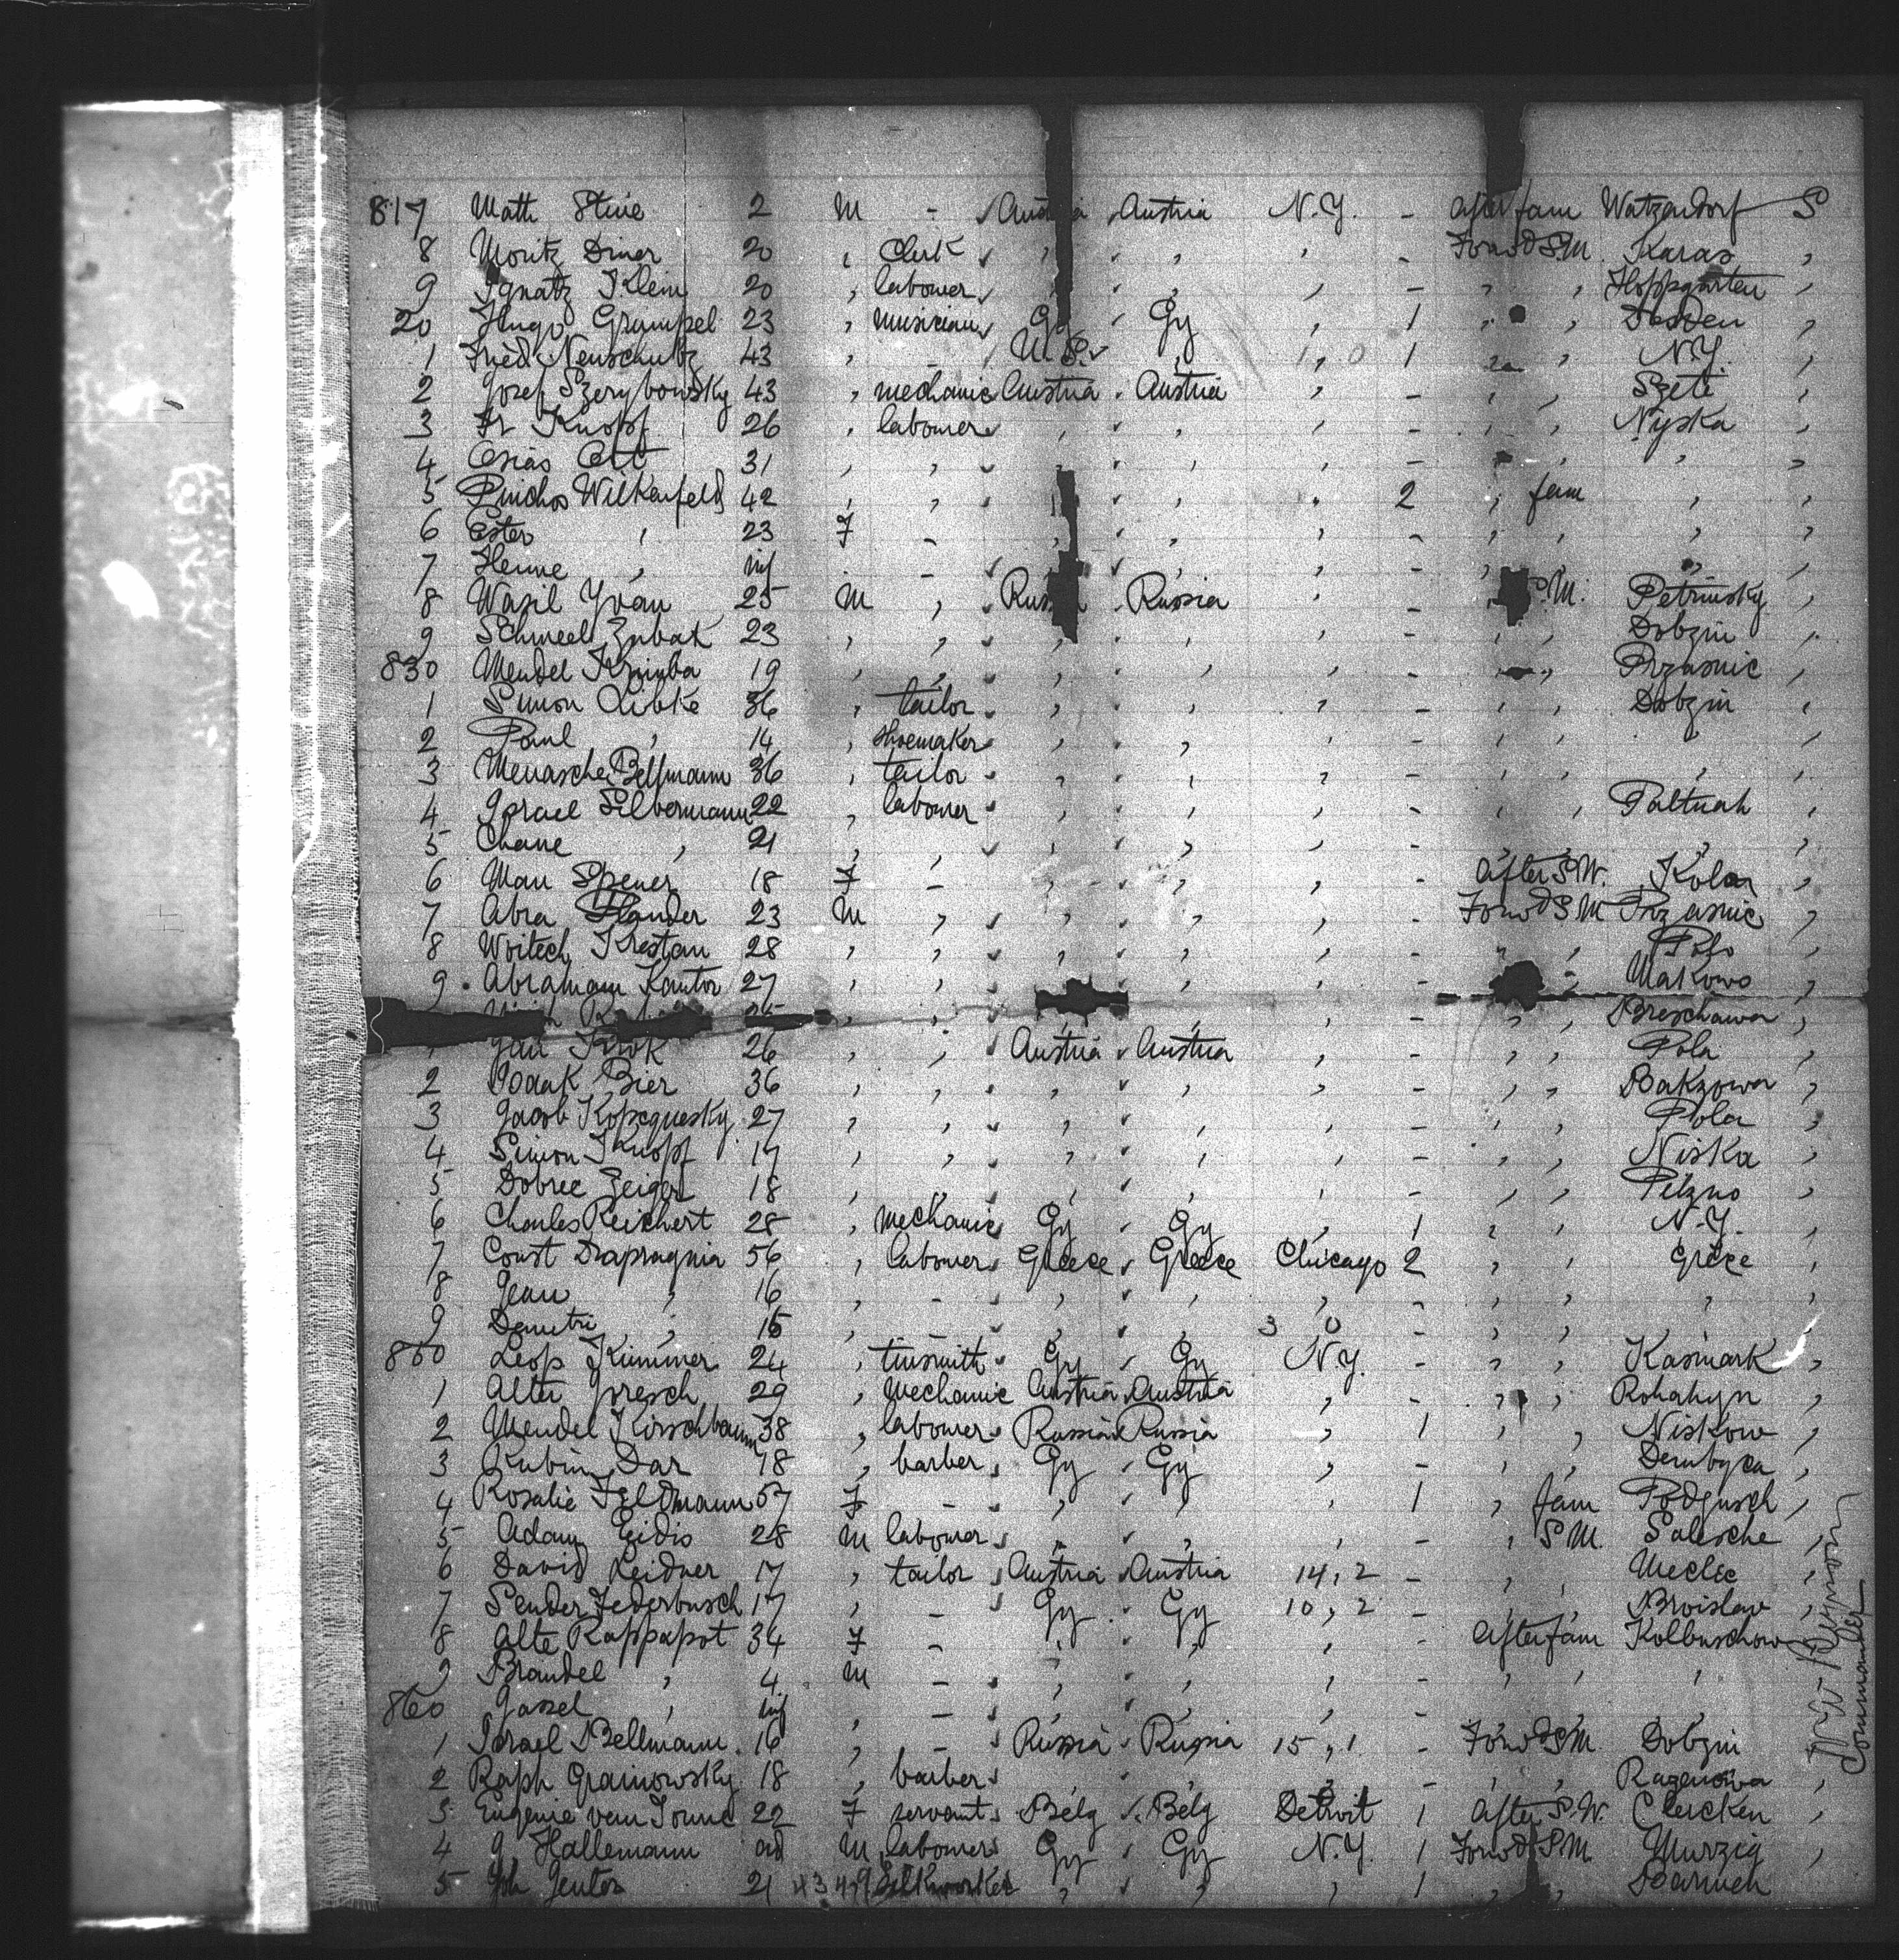 817 Math Stine 2 M - Aus a Austria N.Y. - After fam Watzendorf S
8 Moritz Diner 20 , Clerk , , , - Forwd S.M. Karas ,
9 Ignatz Klein 20 , labourer , , , - , , Hoppgarten ,
20 Hugo Grumpel 23 , musician Gy Gy , 1 , , Dresden ,
1 Fried. Neuschutz 43 , - U.S. , 1, 0 1 , , N.Y. ,
2 Josef Szerybowsky 43 , mechanic Austria Austria , - , , Szete ,
3 Fr Knopf 26 , labourer , , , - , , Nyska ,
4 Osias Ott 31 , , , , , - , , , ,
5 Pinchos Wilkenfeld 42 , , , , , 2 , fam , ,
6 Ester , 23 F - , , , - , , , ,
7 Henne , inf . - , , , - , , , ,
8 Wasil Yvan 25 M , Russ Russia , - , S.M. Petrinsky ,
9 Schmeel Zubak 23 , , , , , - , , Dobzin ,
830 Mendel Krimba 19 , , , , , - , , Przasnic ,
1 Simon Libke 36 , tailor , , , - , , Dobzin ,
2 Paul , 14 , shoemaker , , , - , , , ,
3 Menasche Bellmann 36 , tailor , , , - , , , ,
4 Israel Silbermann 22 , labourer , , , - , , Paltuah ,
5 Chane , 21 , , , , , - , , , ,
6 Man Spener 18 F - , , , - After S.W. Kolar ,
7 Abra Flander 23 M , , , , - Forwd S M Przasnic ,
8 Woitech Krestan 28 , , , , , - , , Polo ,
9 Abraham Kantor 27 , , , , , - , , Makowo ,
, , , , , - , , Breschawa ,
, Jan Krok 26 , , Austria Austria , - , , Pola ,
2 Isaak Bier 36 , , , , , - , , Bakzowa ,
3 Jacob Kopcquesky 27 , , , , , - , , Pola ,
4 Simon Knopf 17 , , , , , - , , Niska ,
5 Dobree Zeiger 18 , , , , , - , , Pilzno ,
6 Charles Reichert 28 , mechanic Gy Gy , 1 , , N.Y. ,
7 Const Dapragnia 56 , labourer Greece Greece Chicago 2 , , Grece ,
8 Jean , 16 , - , , , - , , , ,
9 Demetri , 15 , - , , 3 0 - , , , ,
850 Leop Kummer 24 , tinsmith Gy Gy N.Y. - , , Kasmark ,
1 Alter Joresch 29 , mechanic Austria Austria , - , , Rohahyn ,
2 Mendel Kirschbaum 38 , labourer Russia Russia , 1 , , Niskow ,
3 Rubin Dar 18 , barber Gy Gy , - , , Dembyca ,
4 Rosalie Feldmann 57 F - , , , 1 , fam Podgusch ,
5 Adam Eidis 28 M labourer , , , - , S M. Salesche ,
6 David Leidner 17 , tailor Austria Austria 14, 2 - , , Meclec ,
7 Sender Federbusch 17 , - Gy Gy 10, 2 - , , Broislaw ,
8 Alte Rappapot 34 F - , , , - After fam Kolbuschow
9 Brandel , 4 M - , , , - , , ,
860 Gassel , inf , - , , , - , , ,
1 Israel Bellmann 16 , - Russia Russia 15, 1 - Forwd S M. Dobzin
2 Raph Grainowsky 18 , barber , , , - , , Razenowa ,
3 Eugenie van Tonne 22 F servant Belg Belg Detroit 1 After S.W. Clercken ,
4 G Hallemann ad M labourer Gy Gy N.Y. 1 Forwd S.M. Murzig ,
5 Joh Jenter 21 Silkworker , , , 1 , , Barmen
Commander